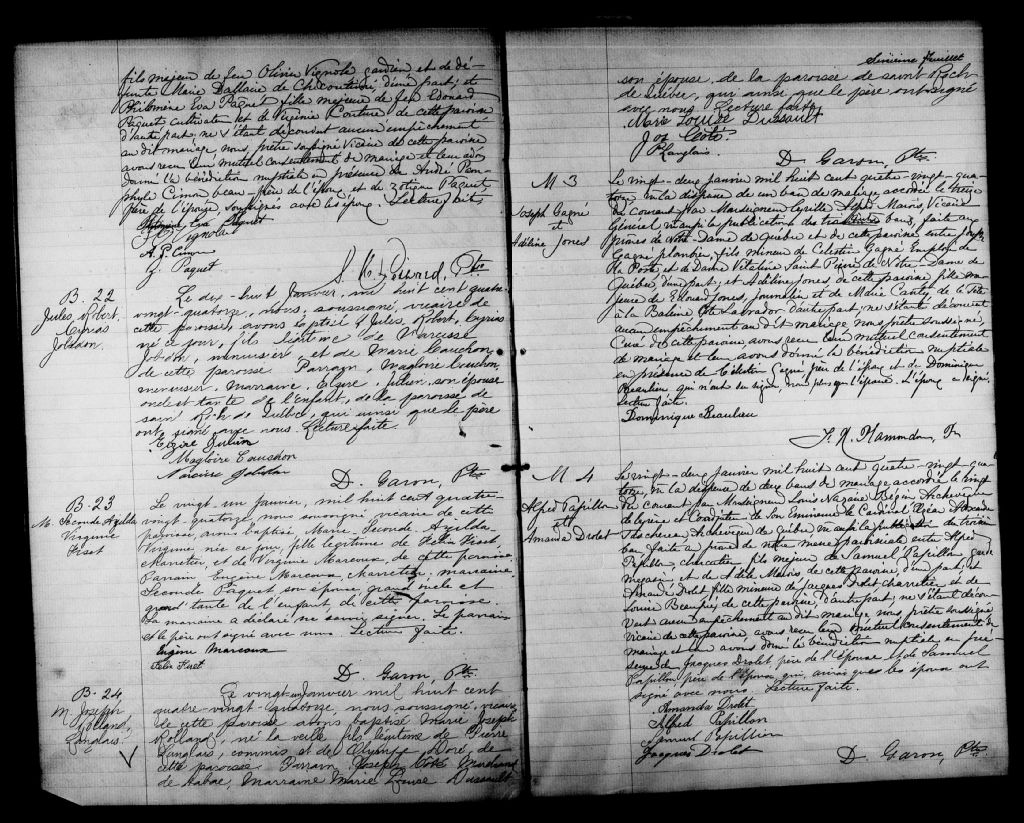 fils majeur de feu Olivier Vignola gardien et de dé-
funte Marie Dallaire de Chicoutimi, d'une part; et
Philomène Eva Paquet fille majeure de feu Edouard
Paquet cultivateur et de Virginie Couture de cette paroisse
d'autre part, ne s'étant découvert aucun empêchement
au dit mariage, nous, prêtre soussigné Vicaire de cette paroisse
avons reçu leur mutuel consentement de mariage et leur avons
donné la bénédiction nuptiale en présence de André Pam-
phyle Cimon beau-père de l'époux et de Zotique Paquet
frère de l'épouse, soussignés avec les époux. Lecture faite
Eva Paquet
Vignola
A. P. Cimon
Z. Paquet
Ptre
B. 22
Jules, Robert,
Cyrias
Jobidon.
Le dix-huit Janvier, mil huit cent quatre-
vingt-quatorze, nous, soussigné, vicaire de
cette paroisse, avons baptisé Jules, Robert, Cyrias
né ce jour, fils légitime de Narcisse
Jobidon, menuisier, et de Marie Cauchon
de cette paroisse Parrain, Magloire Cauchon,
menuisier, Marraine, Elzire Julien, son épouse
oncle et tante de l'enfant, de la paroisse de
saint Roch de Québec, qui ainsi que le père
ont signé avec nous. Lecture faite.
Elzire Julien
Magloire Cauchon
Narcisse Jobidon
D. Garon, Ptre
B. 23
M. Seconde Azilda
Virginie
Fiset
Le vingt-un Janvier, mil huit cent quatre-
vingt-quatorze, nous soussigné vicaire de cette
paroisse, avons baptisé Marie-Seconde-Azilda-
Virginie née ce jour, fille légitime de Felix Fiset
charretier, et de Virginie Marcoux, de cette paroisse
Parrain Eugène Marcoux, charretier, marraine
Seconde Paquet son épouse grand oncle et
grand'tante de l'enfant, de cette paroisse.
La marraine a déclaré ne savoir signer. Le parrain
et le père ont signé avec nous. Lecture faite.
Eugène Marcoux
Felix Fiset
D. Garon, Ptre
B. 24
M. Joseph
Rolland,
Langlais.
Le vingt-un Janvier mil huit cent
quatre-vingt-quatorze, nous soussigné, vicaire
de cette paroisse avons baptisé Marie Joseph
Rolland, né la veille fils légitime de Pierre
Langlais, commis et de Olympe Doré, de
cette paroisse. Parrain Joseph Côté Marchand
de tabac, Marraine Marie Louise Dussault
Feuillet
son épouse, de la paroisse de saint Roch
de Québec, qui ainsi que le père ont signé
avec nous. Lecture faite
Marie Louise Dussault
Jos Côté.
P Langlais.
D. Garon, Ptre
M 3
Joseph Gagné
et
Adéline Jones
Le vingt-deux janvier mil huit cent quatre-vingt-qua-
torze, vu la dispense de un ban de mariage accordée le treize
du courant par Monseigneur Cyrille Marois, Vicaire
Général vu aussi la publication des bans, faite aux
prônes de Notre-Dame de Québec et de cette paroisse entre Joseph
Gagné plombier, fils mineur de Celestin Gagné Employé de
la Poste et de Dame Vitaline Saint Pierre de Notre-Dame de
Québec, d'une part; et Adéline Jones de cette paroisse fille ma-
jeure de Edouard Jones, journalier et de Marie Canty de la Tête
à la Baleine Côte Labrador d'autre part; ne s'étant découvert
aucun empêchement au dit mariage nous prêtre soussigné,
Curé de cette paroisse avons reçu leur mutuel consentement
de mariage et leur avons donné la bénédiction nuptiale
en présence de Célestin Gagné père de l'époux et de Dominique
Beaulieu qui n'ont su signer, non plus que l'épouse. L'époux a signé.
Lecture faite.
Dominique Beaulieu
M 4
Alfred Papillon
et
Amanda Drolet
Le vingt-deux Janvier mil huit cent quatre-vingt-qua-
torze, vu la dispense de deux bans de mariage accordée le vingt
du courant par Monseigneur Louis Nazaire Bégin Archevêque
de Cyrène et Coadjuteur de Son Eminence le Cardinal Elzéar Alexandre
Taschereau Archevêque de Québec vu aussi la publication du troisième
ban, faite au prône de notre messe paroissiale entre Alfred
Papillon, charretier fils mineur de Samuel Papillon garde
magasin et de Adèle Marois de cette paroisse, d'un part; et
Amanda Drolet fille mineure de Jacques Drolet charretier et de
Louise Beaupré de cette paroisse, d'autre part; ne s'étant décou-
vert aucun empêchement au dit mariage nous prêtre soussigné
Vicaire de cette paroisse, avons reçu leur mutuel consentement de
mariage et leur avons donné la bénédiction nuptiale en pré-
sence de Jacques Drolet père de l'épouse et de Samuel
Papillon père de l'époux qui, ainsi que les époux ont
signé avec nous. Lecture faite.
Amanda Drolet
Alfred Papillon
Samuel Papillon
Jacques Drolet
D. Garon, Ptre